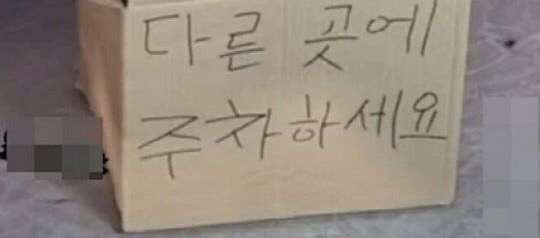 다른 곳에
주차하세요